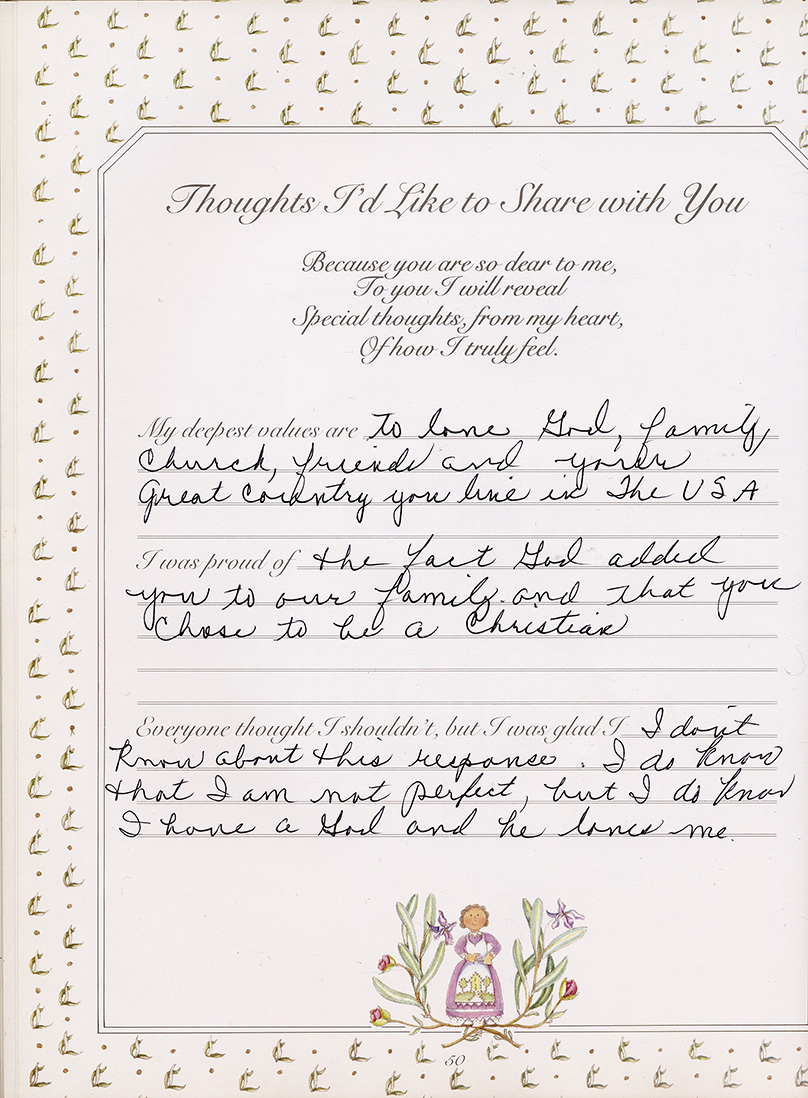 Thoughts I'd Like to Share with You
Because you are so dear to me,
To you I will reveal
Special thoughts, from my heart,
Of how I truly feel.
My deepest values are to love God, family,
Church, friends and your
Great Country you live in The USA
I was proud of the fact God added
you to our family and that you
Chose to be a Christian
Everyone thought I shouldn't, but I was glad I I don't
know about this response. I do know
that I am not perfect, but I do know
I have a God and he loves me.
50